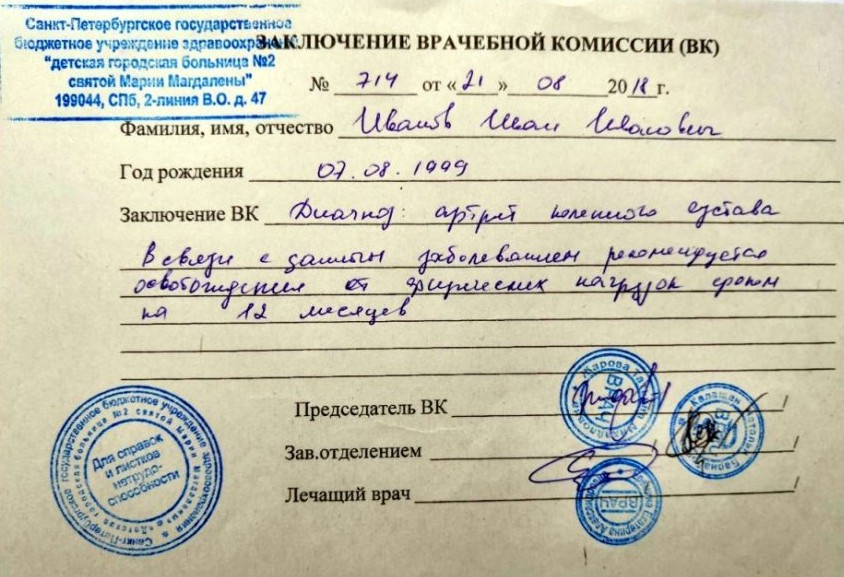 Санкт-Петербургское государственное
бюджетное учреждение здравоохран
"детская городская больница №2
святой Марии Магдалены"
199044, СПб, 2-линия В.О. д. 47
ЗАКЛЮЧЕНИЕ ВРАЧЕБНОЙ КОМИССИИ (ВК)
№ 714 от «21» 08 2018 г.
Фамилия, имя, отчество Иванов Иван Иванович
Год рождения 07.08.1999
Заключение ВК Диагноз: артрит коленного сустава
В связи с данным заболеванием рекомендуется
освобождение от физических нагрузок сроком
на 12 месяцев
Председатель ВК
Зав.отделением
Лечащий врач
Для справок
и листков
нетрудо-
способности
Санкт-Петербургское государственное бюджетное учреждение здравоохранения
Жарова
ВРАЧ
Калашян
ВРАЧ
Екатерина